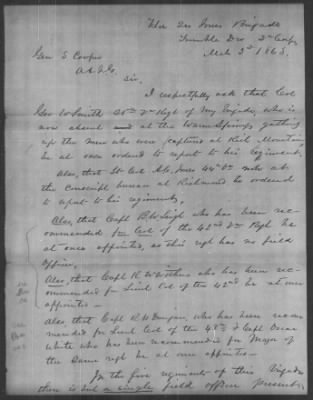 Hd Qrs Jones Brigade
Trimble Div 2d Corps
Mch 3d 1863.
Gen S Cooper
A & I G
Sir,
I respectfully ask that Col
Geo W Smith Va Regt of my Brigade, who is
now absent at the Warm Springs getting
up the men who were captured at Rich Mountain,
be at once ordered to report to his regiment,
Also, that Lt Col Jones 44th Va now at
the Conscript bureau at Richmond be ordered
to report to his regiment,
Also, that Capt B W Leigh who has been rec-
ommended for Col of the 42nd Va Regt be
at once appointed, as this regt has no field
officer,
Also, that Capt R W Withers who has been rec-
ommended for Lieut Col of the 42nd be at once
appointed —
Also, that Capt R H Dungan, who has been recom
mended for Lieut Col of the 48th & Capt Oscar
White who has been recommended for Major of
the same regt be at once appointed —
In the five regiments of this Brigade
there is but a single field officer present,